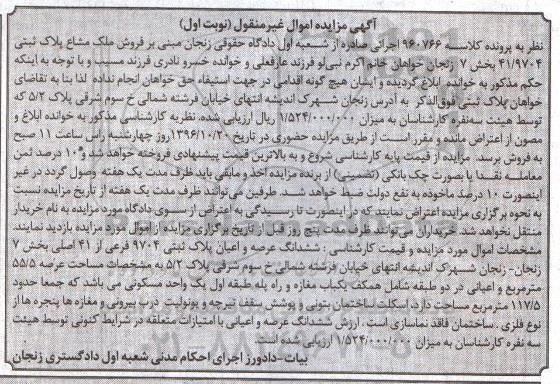 آگهی مزایده اموال غیر منقول (نوبت اول)
نظر به پرونده کلاسه ۹۶۰۷۶۶ اجرائی صادره از شعبه اول دادگاه حقوقی زنجان مبنی بر فروش ملک مشاع پلاک ثبتی
۴۱/۹۷۰۴ بخش ۷ زنجان خواهان خانم اکرم نبی لو فرزند عارفعلی و خوانده خسرو نادری فرزند مسیب و با توجه به اینکه
حکم مذکور به خوانده ابلاغ گردیده و ایشان هیچ گونه اقدامی در جهت استیفاء حق خواهان انجام نداده لذا بنا به تقاضای
خواهان پلاک ثبتی فوق الذکر به آدرس زنجان شهرک اندیشه انتهای خیابان فرشته شمالی خ سوم شرقی پلاک ۵/۲ که
توسط هیئت سه نفره کارشناسان به میزان ۱/۵۲۴/۰۰۰/۰۰۰ ریال ارزیابی شده. نظر به کارشناسی مذکور به خوانده ابلاغ و
مصون از اعتراض مانده و مقرر است از طریق مزایده حضوری در تاریخ ۱۳۹۶/۱۰/۲۰ روز چهارشنبه راس ساعت ۱۱ صبح
به فروش برسد. مزایده از قیمت پایه کارشناسی شروع و به بالاترین قیمت پیشنهادی فروخته خواهد شد و ۱۰ درصد ثمن
معامله نقدا یا بصورت چک بانکی (تضمینی) از برنده مزایده اخذ و مابقی باید ظرف مدت یک هفته وصول گردد در غیر
اینصورت ۱۰ درصد ماخوذه به نفع دولت ضبط خواهد شد. طرفین می توانند ظرف مدت یک هفته از تاریخ مزایده نسبت
به نحوه برگزاری مزایده اعتراض نمایند که در اینصورت تا رسیدگی به اعتراض از سوی دادگاه مورد مزایده به نام خریدار
منتقل نخواهد شد خریداران می توانند ظرف مدت پنج روز قبل از تاریخ برگزاری مزایده از اموال مورد مزایده بازدید نمایند.
مشخصات اموال مورد مزایده و قیمت کارشناسی : ششدانگ عرصه و اعیان پلاک ثبتی ۹۷۰۴ فرعی از ۴۱ اصلی بخش ۷
زنجان - زنجان شهرک اندیشه انتهای خیابان فرشته شمالی خ سوم شرقی پلاک ۵/۲ به مشخصات مساحت عرصه ۵۵/۵
مترمربع و اعیانی در دو طبقه شامل همکف یکباب مغازه و راه پله طبقه اول یک واحد مسکونی می باشد که جمعا حدود
۱۱۷/۵ مترمربع مساحت دارد. اسکلت ساختمان بتونی و پوشش سقف تیرچه و یونولیت درب بیرونی و مغازه ها پنجره ها از
نوع فلزی . ساختمان فاقد نماسازی است . ارزش ششدانگ عرصه و اعیانی با امتیازات متعلقه در شرایط کنونی توسط هیئت
سه نفره کارشناسان به میزان ۱/۵۲۴/۰۰۰/۰۰۰ ارزیابی شده است.
بیات - دادورز اجرای احکام مدنی شعبه اول دادگستری زنجان